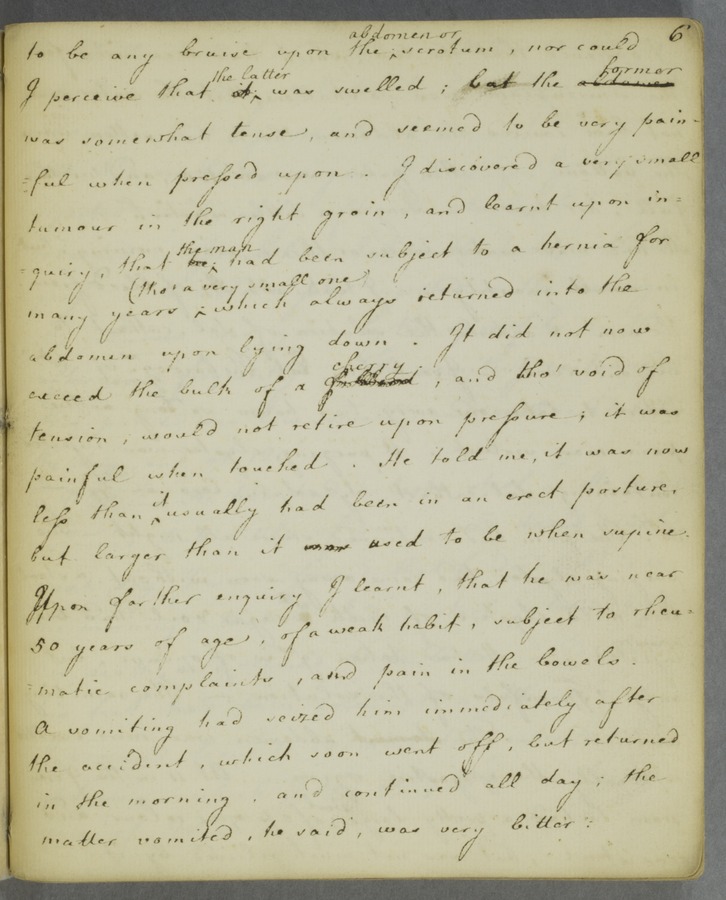 6
abdomen or
to be any bruise upon the ‸ scrotum, nor could
the latter former
I perceive that it ‸ was swelled; but the abdomen
was somewhat tense, and seemed to be very pain-
=ful when pressed upon. I discovered a very small
tumour in the right groin, and learnt upon in=
the man
=quiry, that he ‸ had been subject to a hernia for
(tho' a very small one)
many years ‸ which always returned into the
abdomen upon lying down. It did not now
cherry
exceed the bulk of a , and tho' void of
tension, would not retire upon pressure; it was
painful when touched. He told me, it was now
it
less than ‸ usually had been in an erect posture,
but larger than it was used to be when supine.
Upon farther enquiry I learnt, that he was near
50 years of age, of a weak habit, subject to rheu=
=matic complaints, and pain in the bowels.
A vomiting had seized him immediately after
the accident, which soon went off, but returned
in the morning, and continued all day; the
matter vomited, he said, was very bitter: